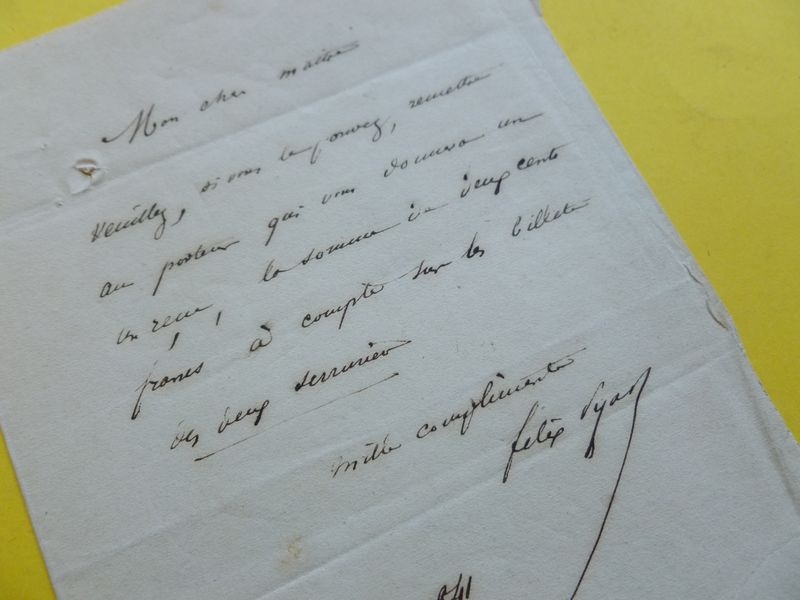 Mon cher maître
veuillez, si vous le pouvez, remettre
au porteur qui vous donnera un
un reçu, la somme de deux cents
francs à compte sur les billets
des deux serruriers
mille compliments
félix Pyat
841